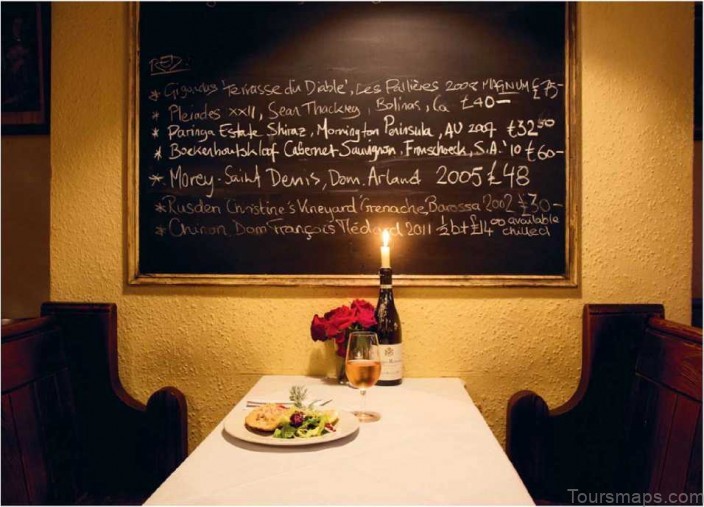 RED:
* Gigondas 'Terrasse du Diable', Les Pallières 2003 MAGNUM £75-
* Pleiades XXII, Sean Thackrey, Bolinas, Ca £40-
* Paringa Estate Shiraz, Mornington Peninsula, AU 2007 £32.50
* Boekenhoutskloof Cabernet Sauvignon, Franschoek, S.A. '10 £60-
* Morey-Saint Denis, Dom. Arland 2005 £48
* Rusden Christine's Vineyard Grenache Barossa 2002 £30-
* Chinon Dom François Médard 2011 ½bt £14.00 available chilled
Toursmaps.com